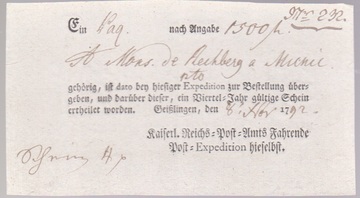 Nro 292.
Ein Paq. nach Angabe 1500 fl.
à Mons. de Rechberg a Munic
gehörig, ist dato bey hiesiger Expedition zur Bestellung über-
geben, und darüber dieser, ein Viertel-Jahr gültige Schein
ertheilet worden. Geißlingen, den 8. Nov 1792.
Kaiserl. Reichs-Post-Amts Fahrende
Post-Expedition hieselbst.